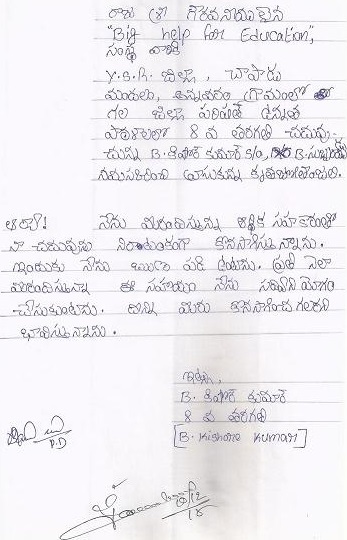 గౌరవనీయులైన
"Big help for Education",
సంస్థ వారికి
Y.S.R. జిల్లా, చాపాడు
మండలం, అన్నవరం గ్రామంలో
గల జిల్లా పరిషత్ ఉన్నత
పాఠశాలలో 8 వ తరగతి చదువు-
-చున్న B. కిషోర్ కుమార్ S/o, B.
వ్రాసుకున్న కృతజ్ఞతాంజలి.
ఆర్యా! నేను మీరందిస్తున్న ఆర్థిక సహకారంతో
నా చదువును నిరాటంకంగా కొనసాగిస్తున్నాను.
ఇందుకు నేను ప్రతి నెలా
మీరందిస్తున్న ఈ సహాయం నేను సద్వినియోగం
-చేసుకుంటాను. దీన్ని మీరు కొనసాగించ గలరని
భావిస్తున్నాను.
ఇట్లు,
B. కిషోర్ కుమార్
8 వ తరగతి
[B. Kishore Kumar]
P.D